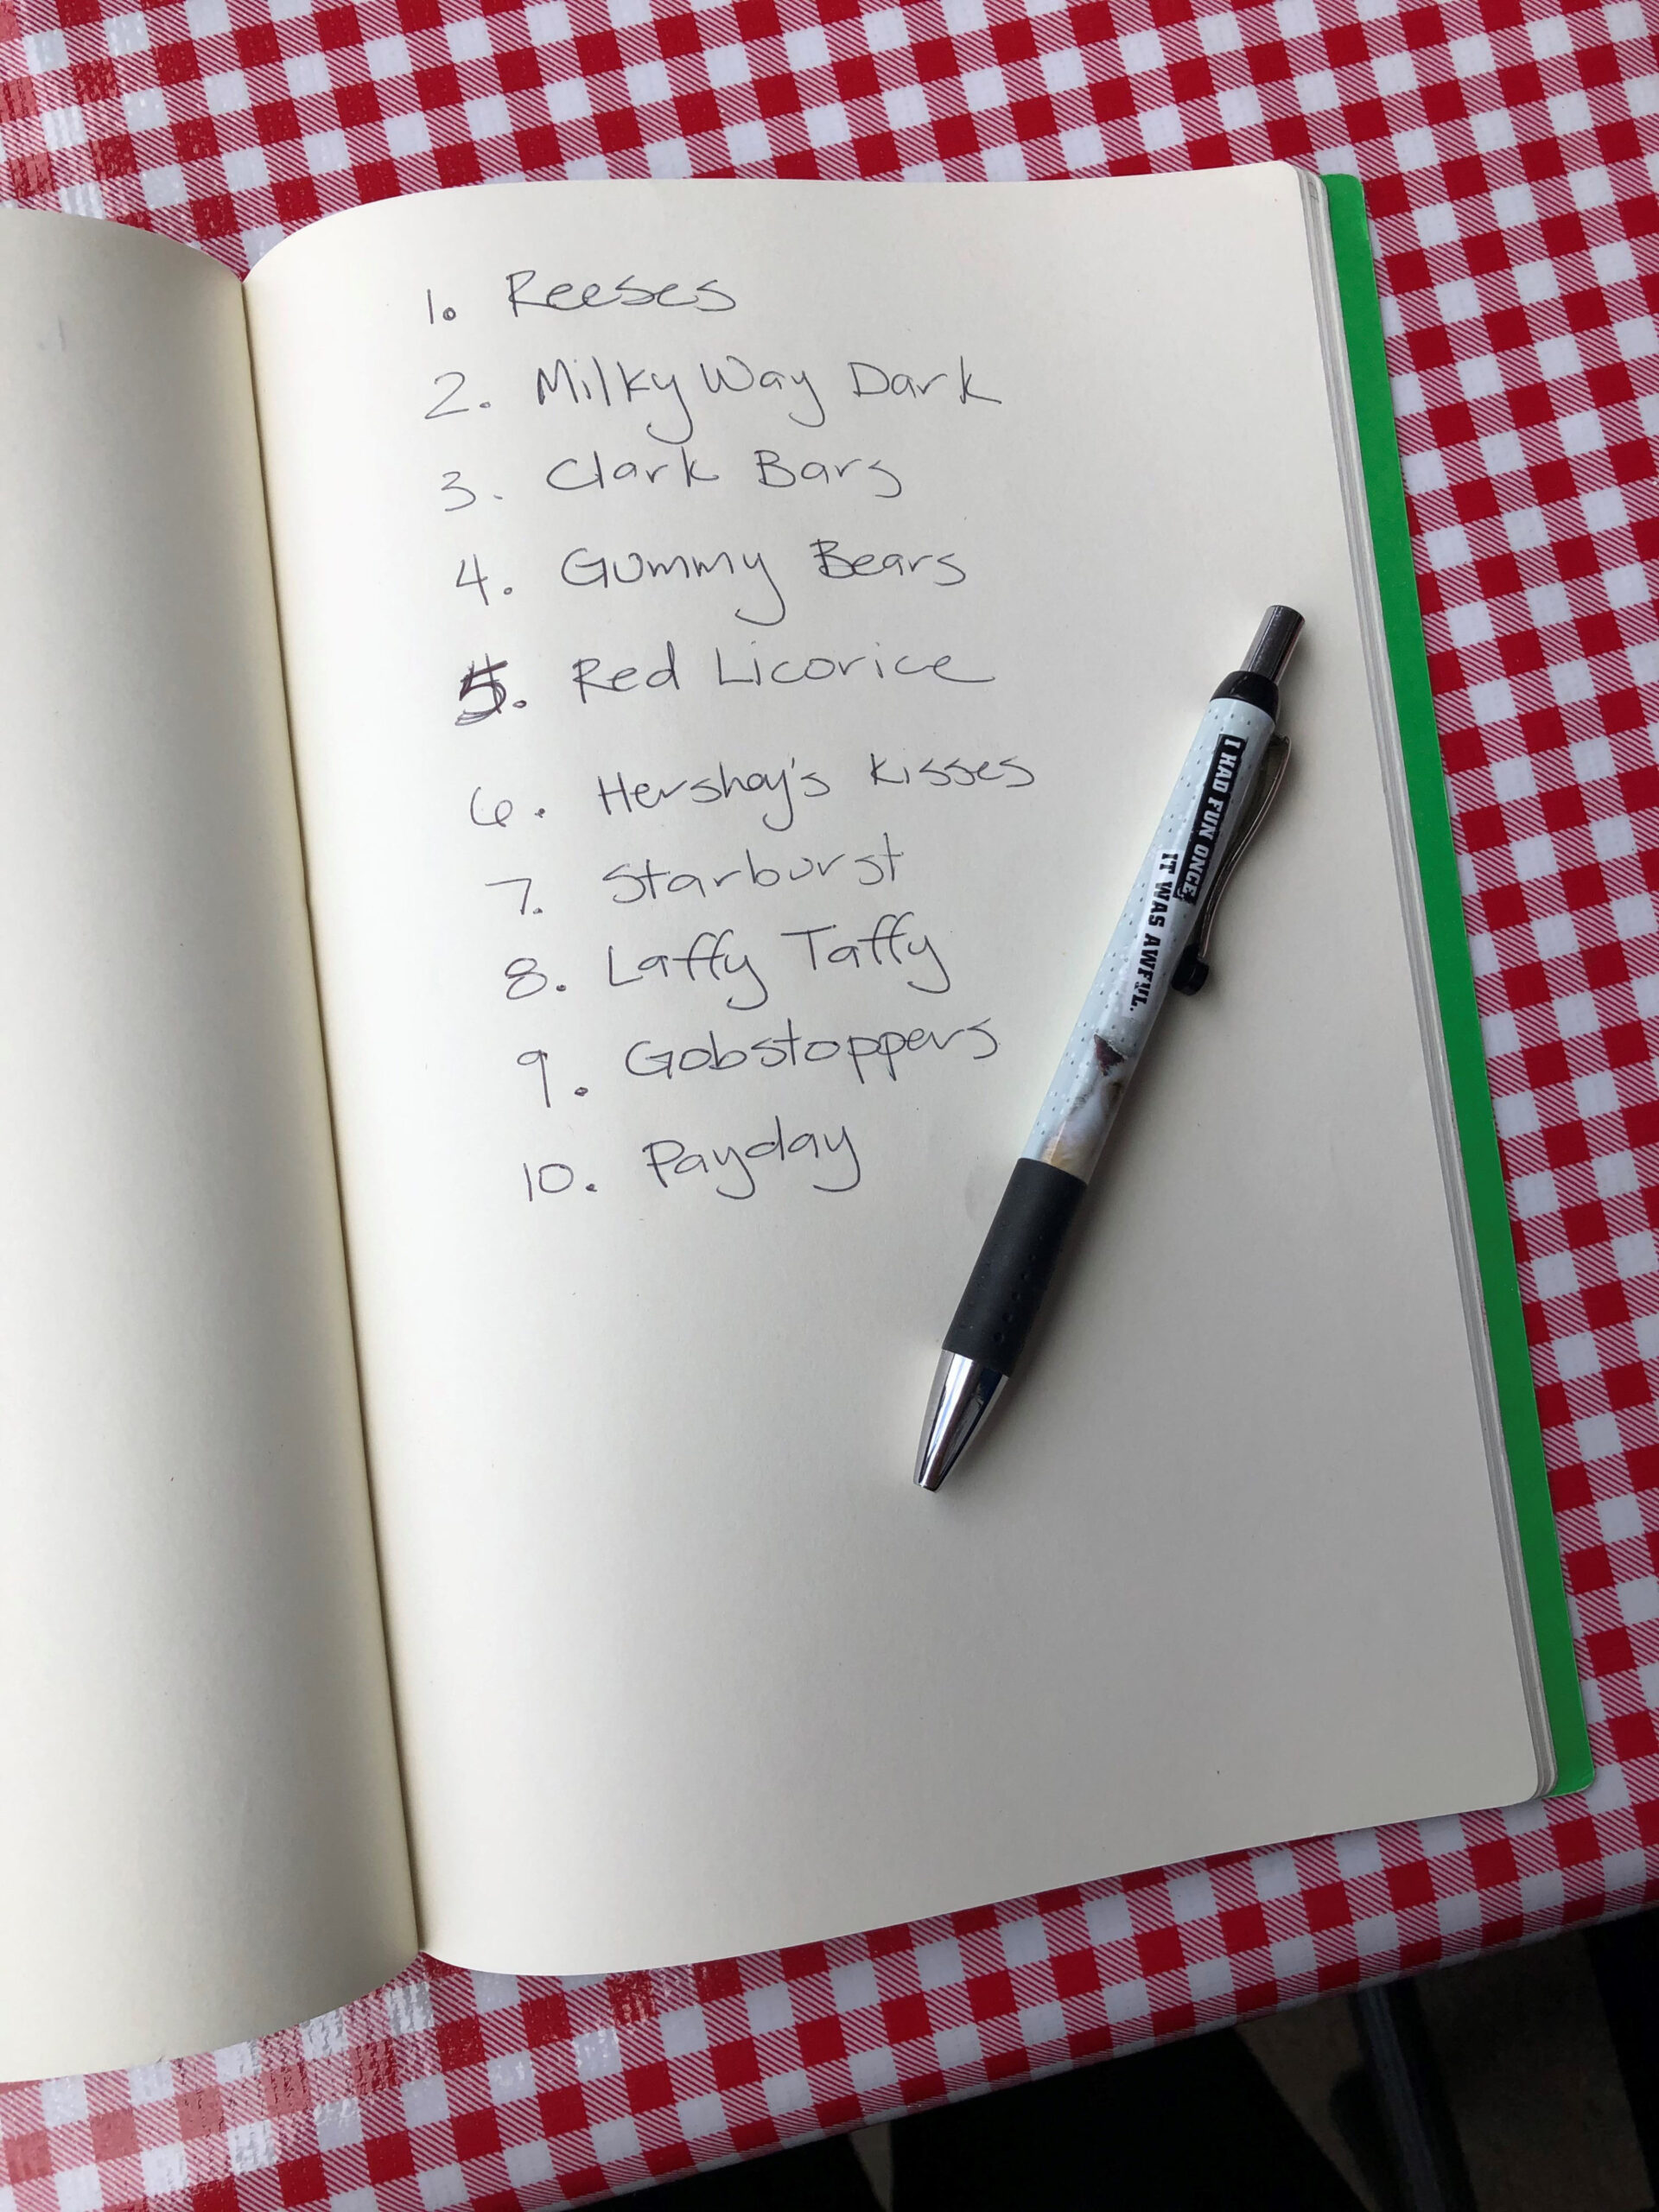 1. Reeses
2. Milky Way Dark
3. Clark Bars
4. Gummy Bears
5. Red Licorice
6. Hershey's Kisses
7. Starburst
8. Laffy Taffy
9. Gobstoppers
10. Payday
I HAD FUN ONCE,
IT WAS AWFUL.